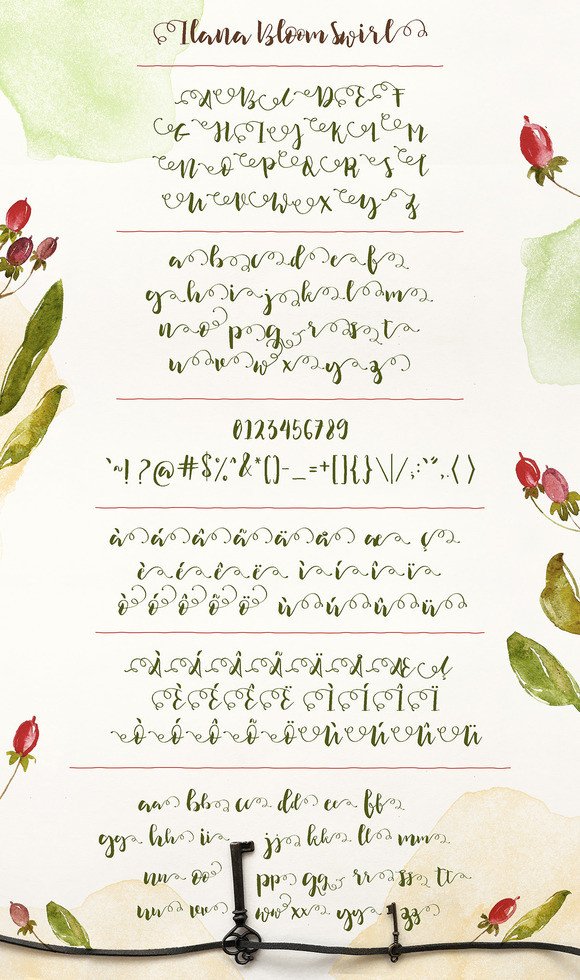 Ilana Bloom Swirl
A B C D E F
G H I J K L M
N O P Q R S T
U V W X Y Z
a b c d e f
g h i j k l m
n o p q r s t
u v w x y z
0123456789
`~!?@#$%^&*()-_=+[]{}\|/;:`",.⟨⟩
à á â ã ä å æ ç
è é ê ë ì í î ï
ò ó ô õ ö ù ú û ü
À Á Â Ã Ä Å Æ Ç
È É Ê Ë Ì Í Î Ï
Ò Ó Ô Õ Ö Ù Ú Û Ü
aa bb cc dd ee ff
gg hh ii jj kk ll mm
nn oo pp qq rr ss tt
uu vv ww xx yy zz